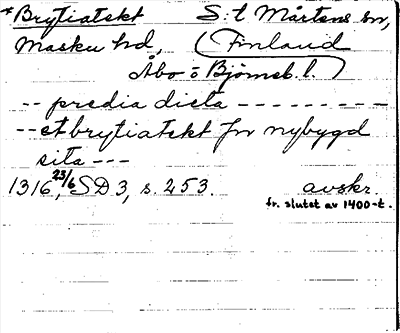 *Brytiatekt S:t Mårtens sn,
Masku hd, (Finland
Åbo o Björneb. l.)
-- predia dicta --------
-- et brytiatekt for nybygd
sita ---
1316 23/6, SD 3, s. 253. avskr.
fr. slutet av 1400-t.